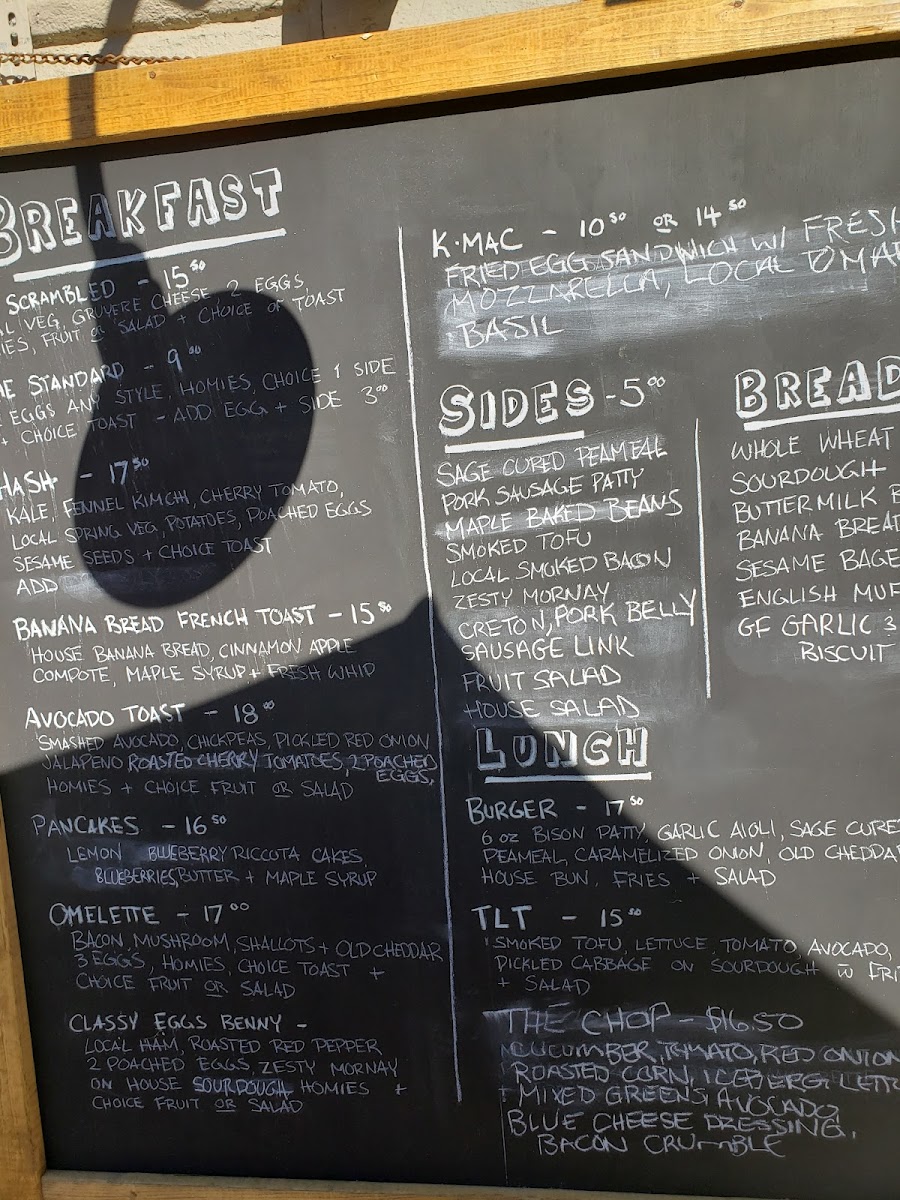 BREAKFAST
SCRAMBLED - 15 50
VEG, GRUYERE CHEESE 2 EGGS,
FRUIT OR SALAD + CHOICE OF TOAST
STANDARD - 9 00
EGGS ANY STYLE, HOMIES, CHOICE 1 SIDE
+ CHOICE TOAST - ADD EGG + SIDE 3 00
HASH - 17 50
KALE, FENNEL KIMCHI, CHERRY TOMATO,
LOCAL SPRING VEG, POTATOES, POACHED EGGS
SESAME SEEDS + CHOICE TOAST
ADD
BANANA BREAD FRENCH TOAST - 15 50
HOUSE BANANA BREAD, CINNAMON APPLE
COMPOTE, MAPLE SYRUP + FRESH WHIP
AVOCADO TOAST - 18 00
SMASHED AVOCADO, CHICKPEAS, PICKLED RED ONION
JALAPENO ROASTED CHERRY TOMATOES, 2 POACHED
EGGS,
HOMIES + CHOICE FRUIT OR SALAD
PANCAKES - 16 50
LEMON BLUEBERRY RICCOTA CAKES,
BLUEBERRIES, BUTTER + MAPLE SYRUP
OMELETTE - 17 00
BACON, MUSHROOM, SHALLOTS + OLD CHEDDAR
3 EGGS, HOMIES, CHOICE TOAST +
CHOICE FRUIT OR SALAD
CLASSY EGGS BENNY -
LOCAL HAM, ROASTED RED PEPPER
2 POACHED EGGS, ZESTY MORNAY
ON HOUSE SOURDOUGH HOMIES +
CHOICE FRUIT OR SALAD
K-MAC - 10 50 OR 14 50
FRIED EGG SANDWICH W/ FRESH
MOZZARELLA, LOCAL TOMA
BASIL
SIDES - 5 00
SAGE CURED PEAMEAL
PORK SAUSAGE PATTY
MAPLE BAKED BEANS
SMOKED TOFU
LOCAL SMOKED BACON
ZESTY MORNAY
CRETON, PORK BELLY
SAUSAGE LINK
FRUIT SALAD
HOUSE SALAD
BREAD
WHOLE WHEAT
SOURDOUGH
BUTTERMILK B
BANANA BREAD
SESAME BAGE
ENGLISH MUF
GF GARLIC 3
BISCUIT
LUNCH
BURGER - 17 50
6 OZ BISON PATTY, GARLIC AIOLI, SAGE CURE
PEAMEAL, CARAMELIZED ONION, OLD CHEDDA
HOUSE BUN, FRIES + SALAD
TLT - 15 50
SMOKED TOFU, LETTUCE, TOMATO, AVOCADO,
PICKLED CABBAGE ON SOURDOUGH W FRI
+ SALAD
THE CHOP - $16.50
CUCUMBER, TOMATO, RED ONION
ROASTED CORN, ICEBERG LETT
+ MIXED GREENS, AVOCADO,
BLUE CHEESE DRESSING,
BACON CRUMBLE